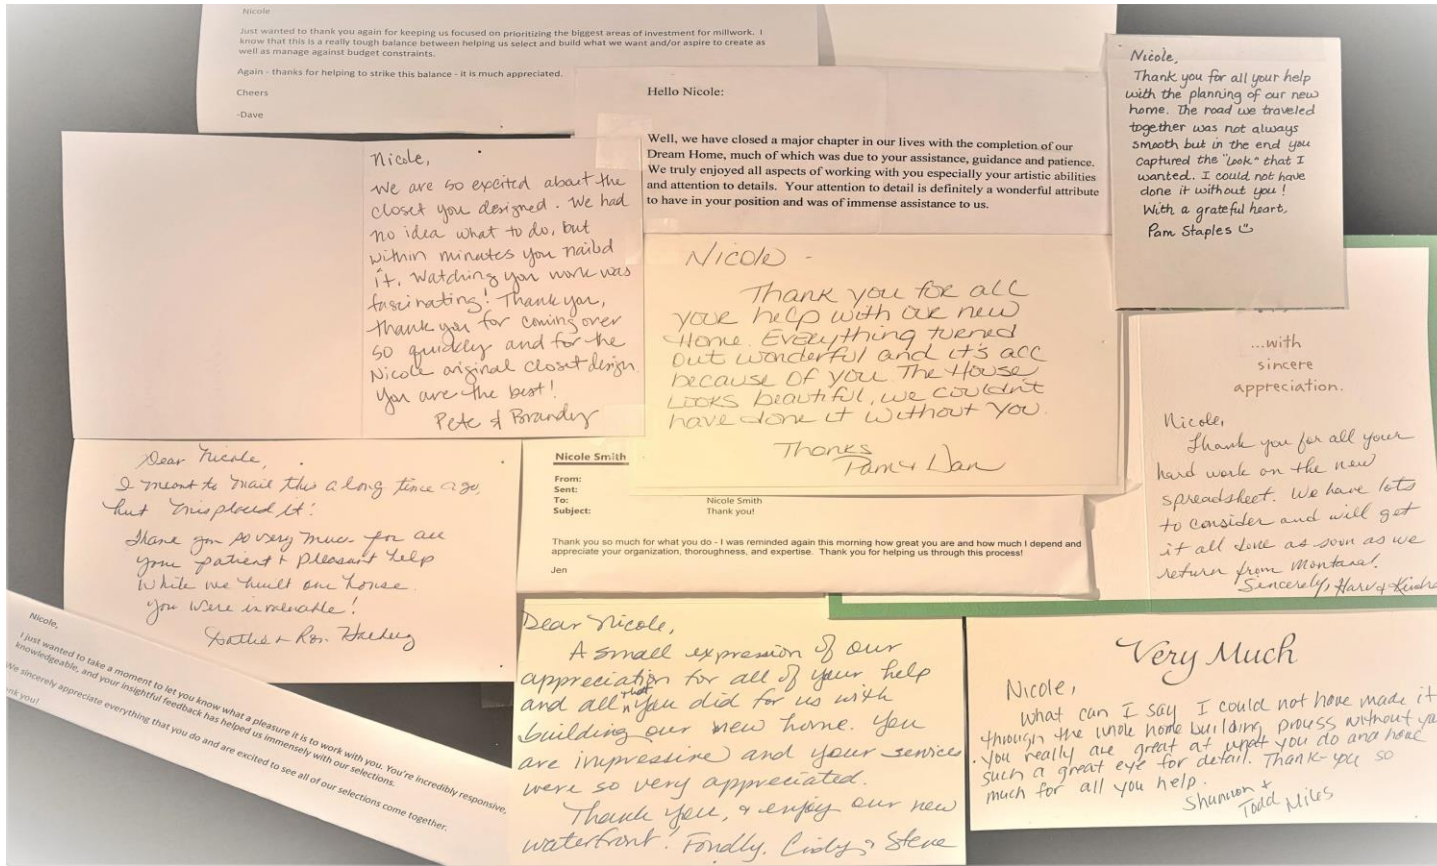 Nicole
Just wanted to thank you again for keeping us focused on prioritizing the biggest areas of investment for millwork. I
know that this is a really tough balance between helping us select and build what we want and/or aspire to create as
well as manage against budget constraints.
Again - thanks for helping to strike this balance - it is much appreciated.
Cheers
-Dave
Hello Nicole:
Well, we have closed a major chapter in our lives with the completion of our
Dream Home, much of which was due to your assistance, guidance and patience.
We truly enjoyed all aspects of working with you especially your artistic abilities
and attention to details. Your attention to detail is definitely a wonderful attribute
to have in your position and was of immense assistance to us.
Nicole,
Thank you for all your help
with the planning of our new
home. The road we traveled
together was not always
smooth but in the end you
captured the "look" that I
wanted. I could not have
done it without you!
With a grateful heart,
Pam Staples
Nicole,
We are so excited about the
closet you designed. We had
no idea what to do, but
within minutes you naild
it. Watching you work was
fascinating! Thank you,
thank you for coming over
so quickly and for the
Nicole original closet design.
You are the best!
Pete & Brandy
Nicole -
Thank you for all
your help with our new
Home. Everything turned
out wonderful and it's all
because of you The House
Looks beautiful, we couldn't
have done it without you.
Thanks
Pam & Dan
...with
sincere
appreciation.
Nicole,
Thank you for all your
hard work on the new
spreadsheet. We have lots
to consider and will get
it all done as soon as we
return from Montana!
Sincerely, Harv &
Dear Nicole,
I meant to mail this a long time ago,
but misplaced it!
Thank you so very much for all
your patient & pleasant help
while we built our house.
You were invaluable!
& Ron
Nicole Smith
From:
Sent:
To: Nicole Smith
Subject: Thank you!
Thank you so much for what you do - I was reminded again this morning how great you are and how much I depend and
appreciate your organization, thoroughness, and expertise. Thank you for helping us through this process!
Jen
Nicole,
I just wanted to take a moment to let you know what a pleasure it is to work with you. You're incredibly responsive,
knowledgeable, and your insightful feedback has helped us immensely with our selections.
We sincerely appreciate everything that you do and are excited to see all of our selections come together.
nk you!
Dear Nicole,
A small expression of our
appreciation for all of your help
and all that you did for us with
building our new home. You
are impressive and your services
were so very appreciated.
Thank you, & enjoy our new
waterfront! Fondly, Cindy & Steve
Very Much
Nicole,
What can I say I could not have made it
through the whole home building process without yo
. You really are great at what you do and have
such a great eye for detail. Thank-you so
much for all you help.
Shannon +
Todd Miles